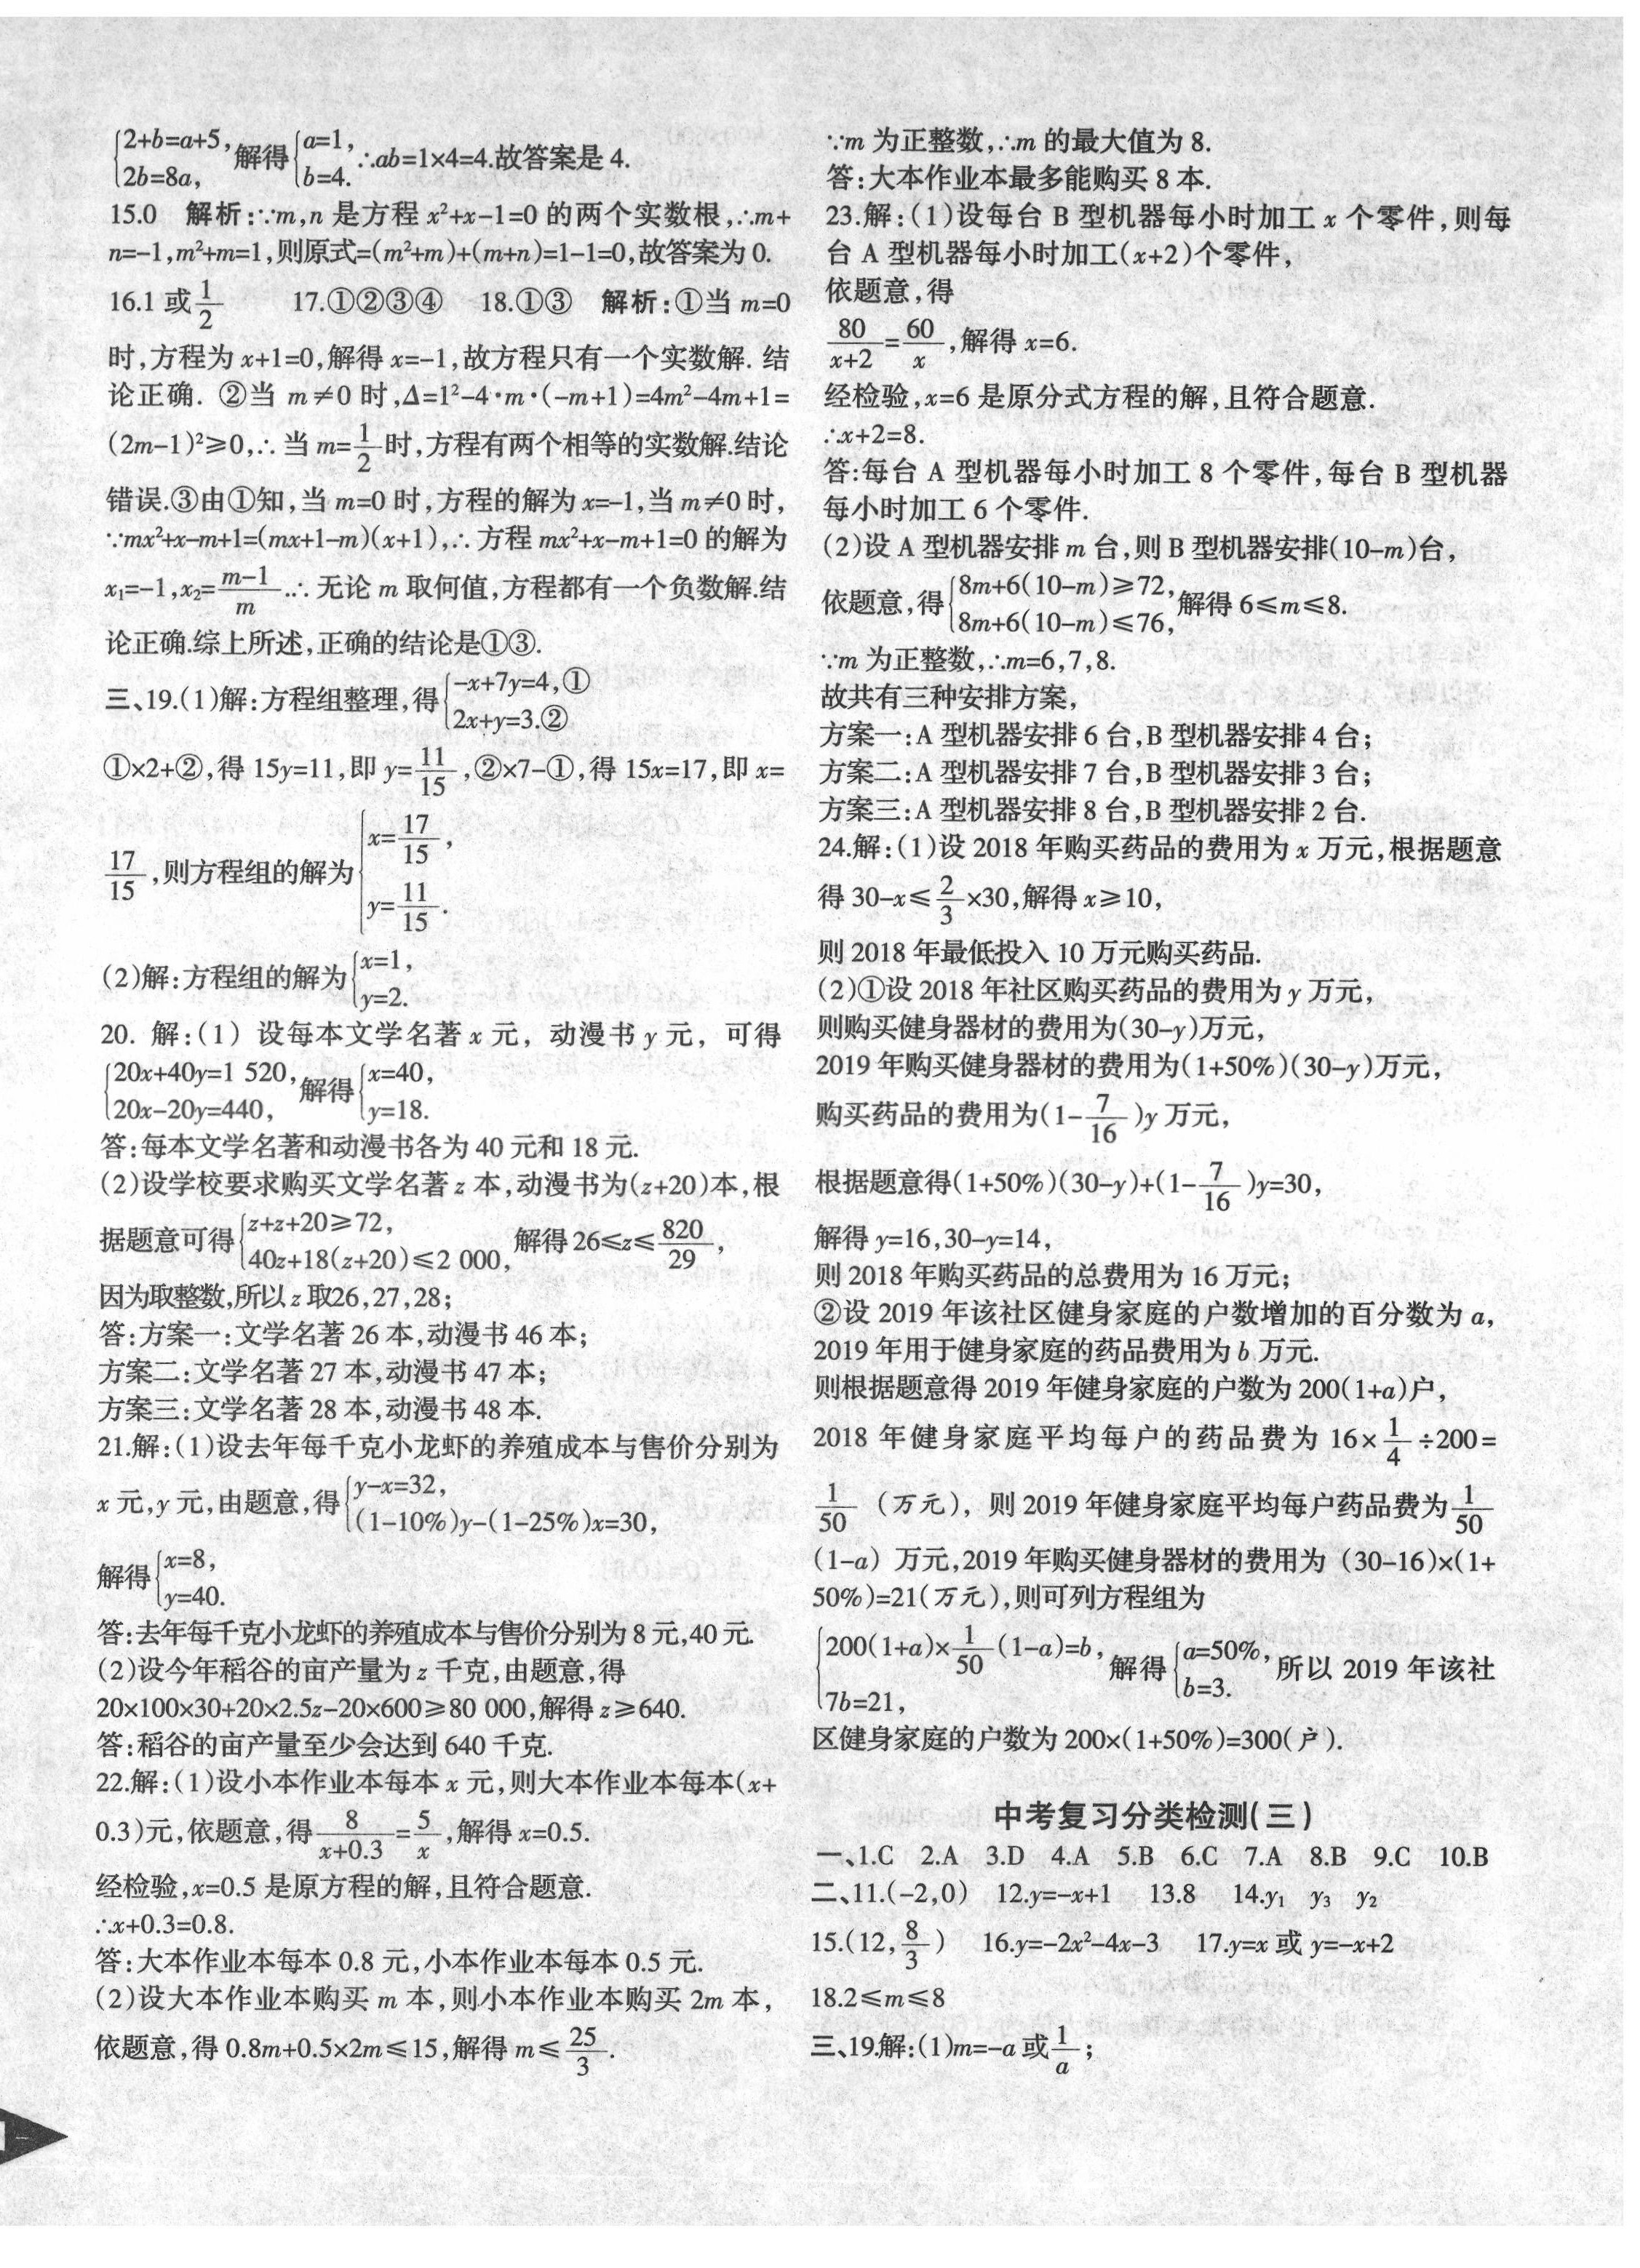 {2+b=a+5, 2b=8a, 解得{a=1, b=4. ∴ab=1×4=4.故答案是 4.
15.0 解析:∵m,n 是方程 x²+x−1=0 的两个实数根,∴m+
n=−1,m²+m=1,则原式=(m²+m)+(m+n)=1−1=0,故答案为 0.
16.1 或 1/2 17.①②③④ 18.①③ 解析:①当 m=0
时,方程为 x+1=0,解得 x=−1,故方程只有一个实数解. 结
论正确. ②当 m≠0 时,Δ=1²−4·m·(−m+1)=4m²−4m+1=
(2m−1)²≥0,∴当 m=1/2 时,方程有两个相等的实数解.结论
错误.③由①知,当 m=0 时,方程的解为 x=−1,当 m≠0 时,
∵mx²+x−m+1=(mx+1−m)(x+1),∴方程 mx²+x−m+1=0 的解为
x₁=−1,x₂=(m−1)/m.∴无论 m 取何值,方程都有一个负数解.结
论正确.综上所述,正确的结论是①③.
三、19.(1)解:方程组整理,得{−x+7y=4,① 2x+y=3.②
①×2+②,得 15y=11,即 y=11/15,②×7−①,得 15x=17,即 x=
17/15,则方程组的解为{x=17/15, y=11/15.
(2)解:方程组的解为{x=1, y=2.
20. 解:(1) 设每本文学名著 x 元, 动漫书 y 元, 可得
{20x+40y=1 520, 20x−20y=440, 解得{x=40, y=18.
答:每本文学名著和动漫书各为 40 元和 18 元.
(2)设学校要求购买文学名著 z 本,动漫书为(z+20)本,根
据题意可得{z+z+20≥72, 40z+18(z+20)≤2 000, 解得 26≤z≤820/29,
因为取整数,所以 z 取26,27,28;
答:方案一:文学名著 26 本,动漫书 46 本;
方案二:文学名著 27 本,动漫书 47 本;
方案三:文学名著 28 本,动漫书 48 本.
21.解:(1)设去年每千克小龙虾的养殖成本与售价分别为
x 元,y 元,由题意,得{y−x=32, (1−10%)y−(1−25%)x=30,
解得{x=8, y=40.
答:去年每千克小龙虾的养殖成本与售价分别为 8 元,40 元.
(2)设今年稻谷的亩产量为 z 千克,由题意,得
20×100×30+20×2.5z−20×600≥80 000,解得 z≥640.
答:稻谷的亩产量至少会达到 640 千克.
22.解:(1)设小本作业本每本 x 元,则大本作业本每本(x+
0.3)元,依题意,得 8/(x+0.3)=5/x,解得 x=0.5.
经检验,x=0.5 是原方程的解,且符合题意.
∴x+0.3=0.8.
答:大本作业本每本 0.8 元,小本作业本每本 0.5 元.
(2)设大本作业本购买 m 本,则小本作业本购买 2m 本,
依题意,得 0.8m+0.5×2m≤15,解得 m≤25/3.
∵m 为正整数,∴m 的最大值为 8.
答:大本作业本最多能购买 8 本.
23.解:(1)设每台 B 型机器每小时加工 x 个零件,则每
台 A 型机器每小时加工(x+2)个零件,
依题意,得
80/(x+2)=60/x,解得 x=6.
经检验,x=6 是原分式方程的解,且符合题意.
∴x+2=8.
答:每台 A 型机器每小时加工 8 个零件,每台 B 型机器
每小时加工 6 个零件.
(2)设 A 型机器安排 m 台,则 B 型机器安排(10−m)台,
依题意,得{8m+6(10−m)≥72, 8m+6(10−m)≤76, 解得 6≤m≤8.
∵m 为正整数,∴m=6,7,8.
故共有三种安排方案,
方案一:A 型机器安排 6 台,B 型机器安排 4 台;
方案二:A 型机器安排 7 台,B 型机器安排 3 台;
方案三:A 型机器安排 8 台,B 型机器安排 2 台.
24.解:(1)设 2018 年购买药品的费用为 x 万元,根据题意
得 30−x≤2/3×30,解得 x≥10,
则 2018 年最低投入 10 万元购买药品.
(2)①设 2018 年社区购买药品的费用为 y 万元,
则购买健身器材的费用为(30−y)万元,
2019 年购买健身器材的费用为(1+50%)(30−y)万元,
购买药品的费用为(1−7/16)y 万元,
根据题意得(1+50%)(30−y)+(1−7/16)y=30,
解得 y=16,30−y=14,
则 2018 年购买药品的总费用为 16 万元;
②设 2019 年该社区健身家庭的户数增加的百分数为 a,
2019 年用于健身家庭的药品费用为 b 万元.
则根据题意得 2019 年健身家庭的户数为 200(1+a)户,
2018 年健身家庭平均每户的药品费为 16×1/4÷200=
1/50 (万元), 则 2019 年健身家庭平均每户药品费为 1/50
(1−a) 万元,2019 年购买健身器材的费用为 (30−16)×(1+
50%)=21(万元),则可列方程组为
{200(1+a)×1/50(1−a)=b, 7b=21, 解得{a=50%, b=3. 所以 2019 年该社
区健身家庭的户数为 200×(1+50%)=300(户).
中考复习分类检测(三)
一、1.C 2.A 3.D 4.A 5.B 6.C 7.A 8.B 9.C 10.B
二、11.(−2,0) 12.y=−x+1 13.8 14.y₁ y₃ y₂
15.(12,8/3) 16.y=−2x²−4x−3 17.y=x 或 y=−x+2
18.2≤m≤8
三、19.解:(1)m=−a 或 1/a;